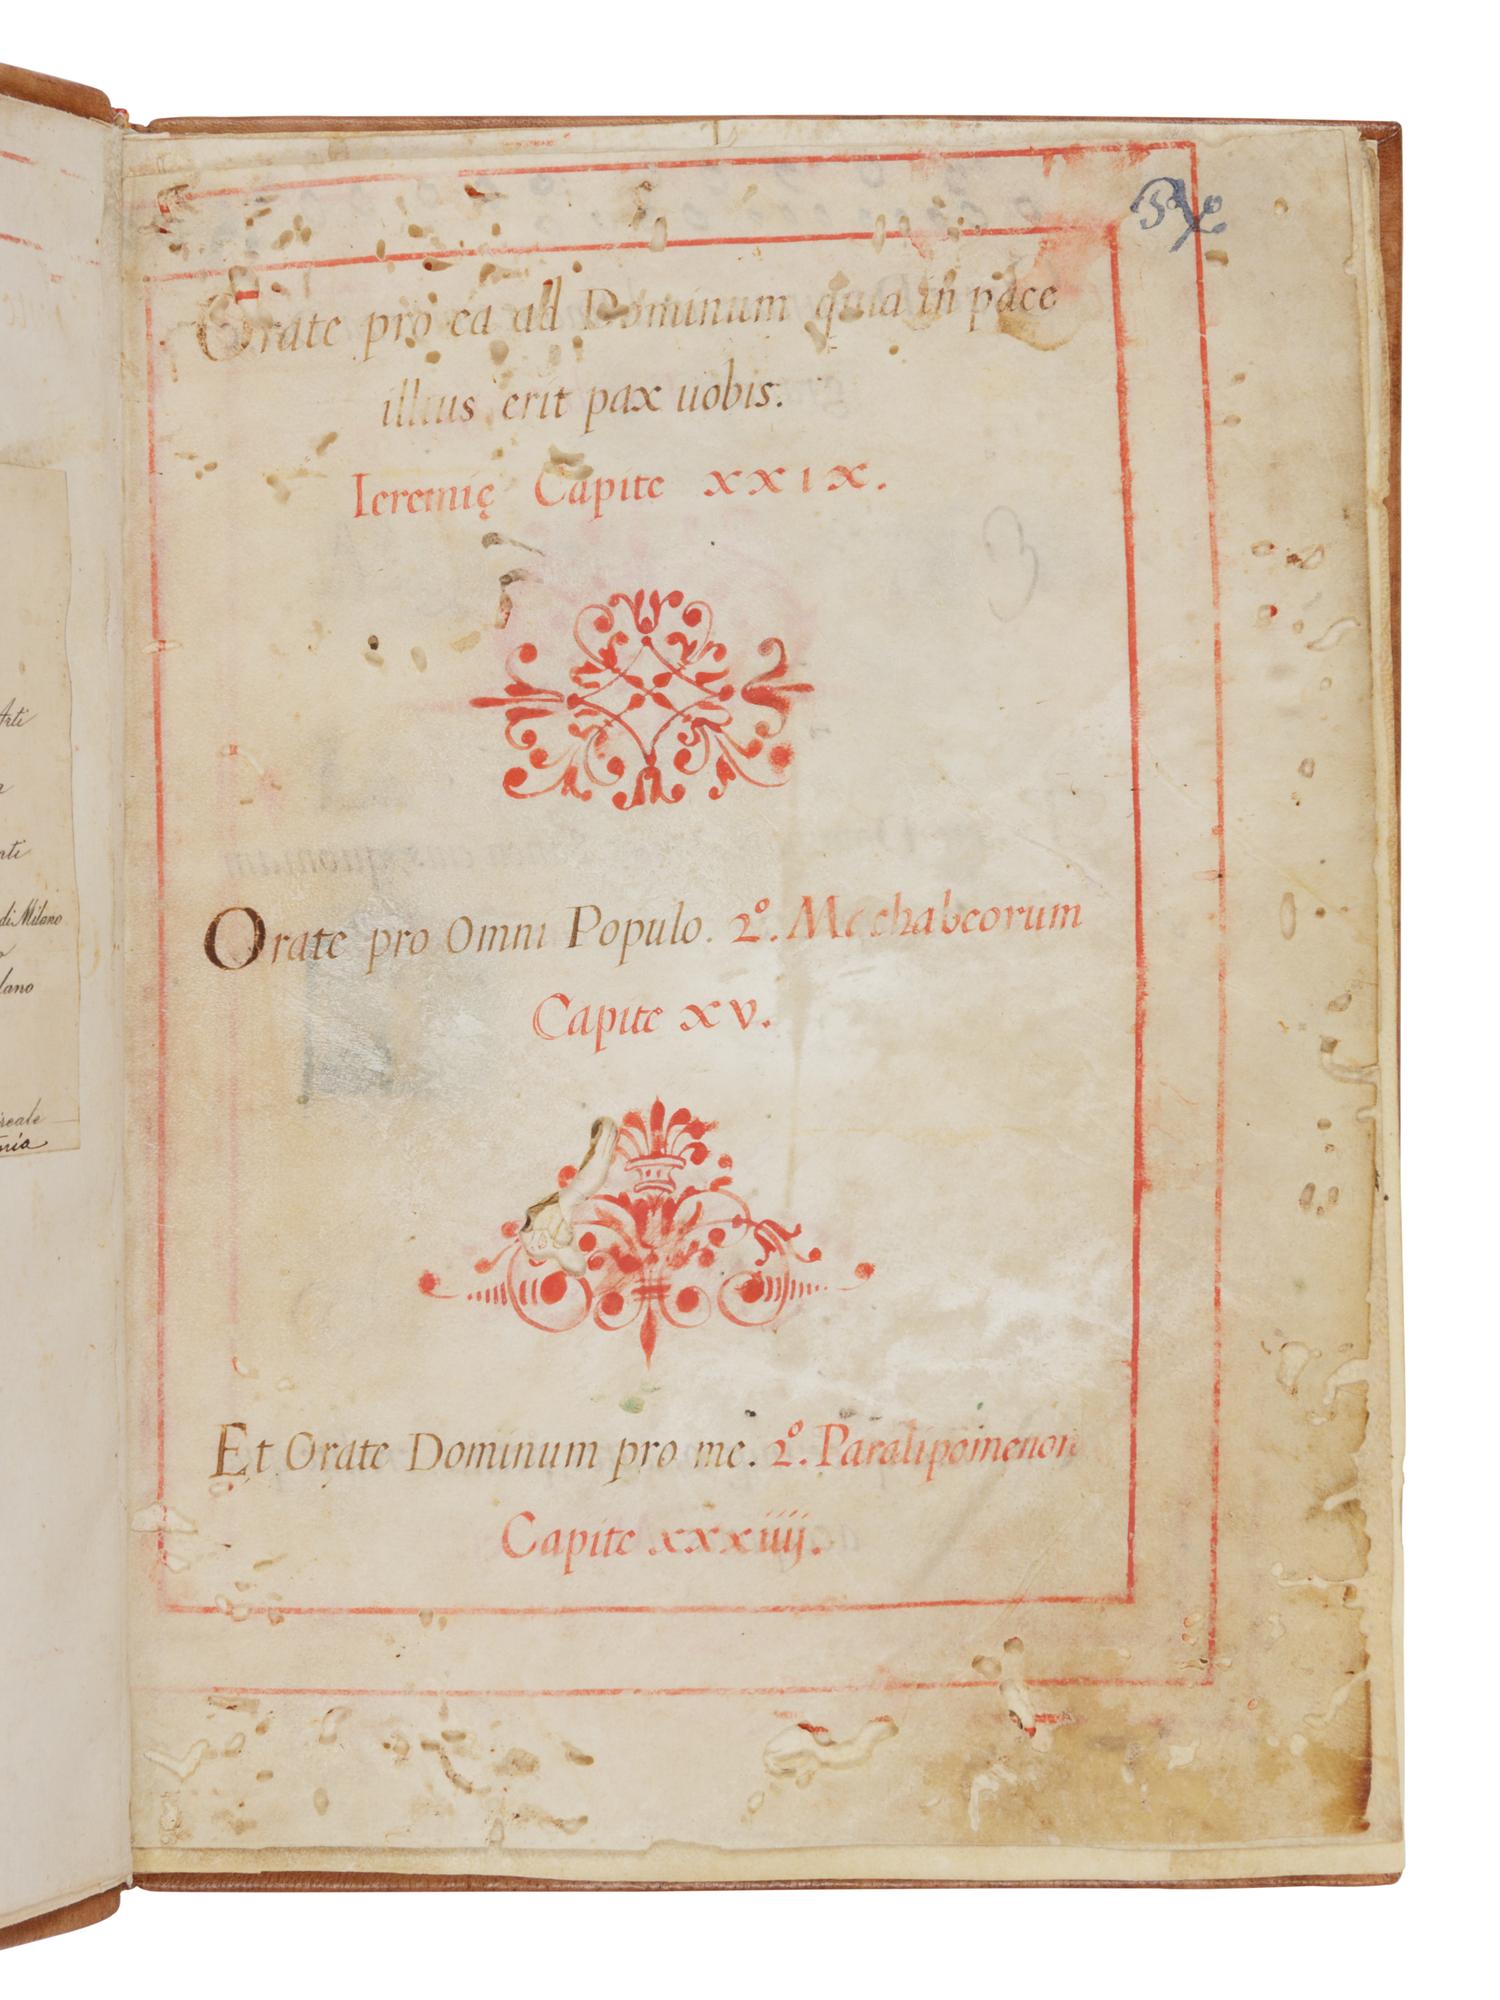 Arti
di Milano
Orate pro ea ad Dominum quia in pace
illius erit pax uobis.
Ieremię Capite xxix.
3
Orate pro Omni Populo. 2º. Mechabeorum
Capite xv.
Et Orate Dominum pro me. 2º. Paralipomenon
Capite xxxiiij.